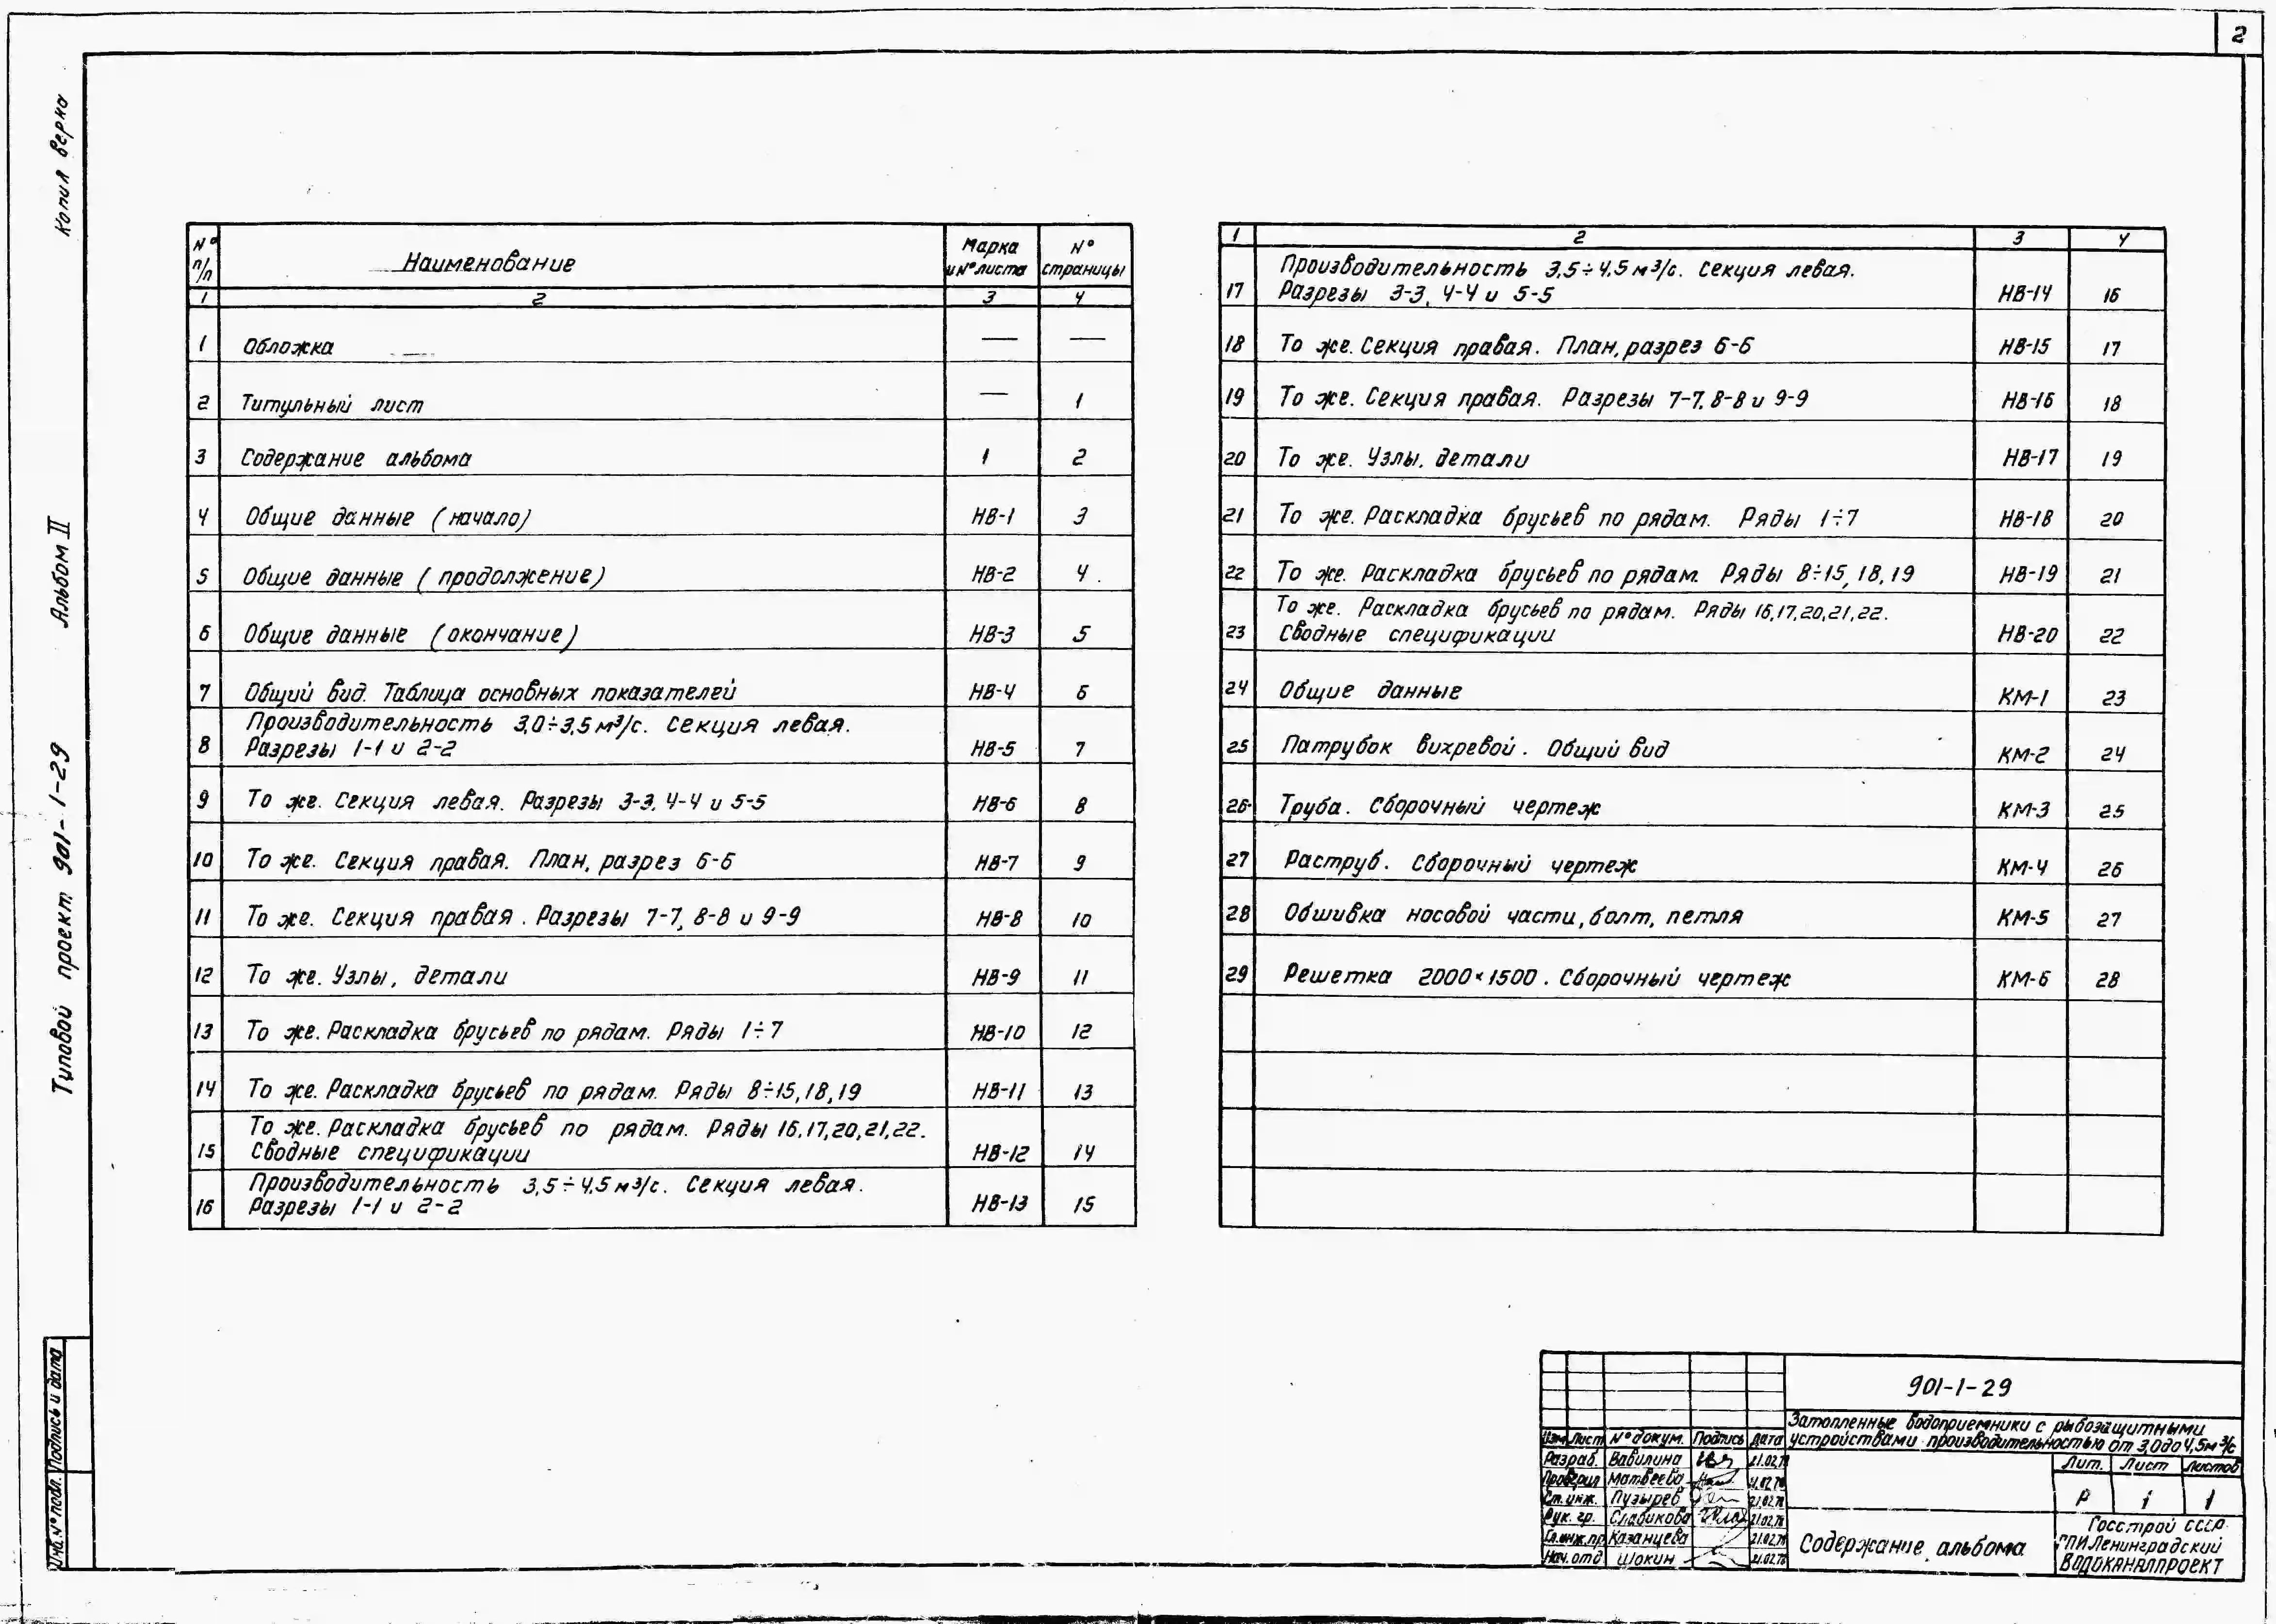 2
Копия верна
Альбом II
Типовой проект 901-1-29
Инв.N°подл. Подпись и дата
N° п/п Наименование Марка и N° листа N° страницы
1 2 3 4
1 Обложка — —
2 Титульный лист — 1
3 Содержание альбома 1 2
4 Общие данные (начало) НВ-1 3
5 Общие данные (продолжение) НВ-2 4
6 Общие данные (окончание) НВ-3 5
7 Общий вид. Таблица основных показателей НВ-4 6
Производительность 3,0÷3,5 м³/с. Секция левая.
8 Разрезы 1-1 и 2-2 НВ-5 7
9 То же. Секция левая. Разрезы 3-3, 4-4 и 5-5 НВ-6 8
10 То же. Секция правая. План, разрез 6-6 НВ-7 9
11 То же. Секция правая. Разрезы 7-7, 8-8 и 9-9 НВ-8 10
12 То же. Узлы, детали НВ-9 11
13 То же. Раскладка брусьев по рядам. Ряды 1÷7 НВ-10 12
14 То же. Раскладка брусьев по рядам. Ряды 8÷15, 18, 19 НВ-11 13
То же. Раскладка брусьев по рядам. Ряды 16,17,20,21,22.
15 Сводные спецификации НВ-12 14
Производительность 3,5÷4,5 м³/с. Секция левая.
16 Разрезы 1-1 и 2-2 НВ-13 15
1 2 3 4
Производительность 3,5÷4,5 м³/с. Секция левая.
17 Разрезы 3-3, 4-4 и 5-5 НВ-14 16
18 То же. Секция правая. План, разрез 6-6 НВ-15 17
19 То же. Секция правая. Разрезы 7-7, 8-8 и 9-9 НВ-16 18
20 То же. Узлы, детали НВ-17 19
21 То же. Раскладка брусьев по рядам. Ряды 1÷7 НВ-18 20
22 То же. Раскладка брусьев по рядам. Ряды 8÷15, 18, 19 НВ-19 21
То же. Раскладка брусьев по рядам. Ряды 16,17,20,21,22.
23 Сводные спецификации НВ-20 22
24 Общие данные КМ-1 23
25 Патрубок вихревой. Общий вид КМ-2 24
26 Труба. Сборочный чертеж КМ-3 25
27 Раструб. Сборочный чертеж КМ-4 26
28 Обшивка носовой части, болт, петля КМ-5 27
29 Решетка 2000×1500. Сборочный чертеж КМ-6 28
901-1-29
Затопленные водоприемники с рыбозащитными
устройствами производительностью от 3,0 до 4,5 м³/с
Изм Лист N° докум. Подпись Дата
Разраб. Вавилина 21.02.78
Проверил Матвеева 21.02.78
Ст. инж. Пузырев 21.02.78
Рук. гр. Славикова 21.02.78
Гл.инж.пр Казанцева 21.02.78
Нач. отд Шокин 21.02.78
Лит. Лист Листов
Р 1 1
Содержание альбома
Госстрой СССР
ГПИ Ленинградский
ВОДОКАНАЛПРОЕКТ